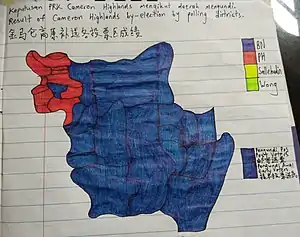 Keputusan PRK Cameron Highlands mengikut daerah mengundi.
Result of Cameron Highlands by-election by polling districts.
金马仑高原补选各投票区成绩
BN
PH
Sallehudin
Wong
Pengundi Pos
Post Voters
Pengundi Awal
Early Voters